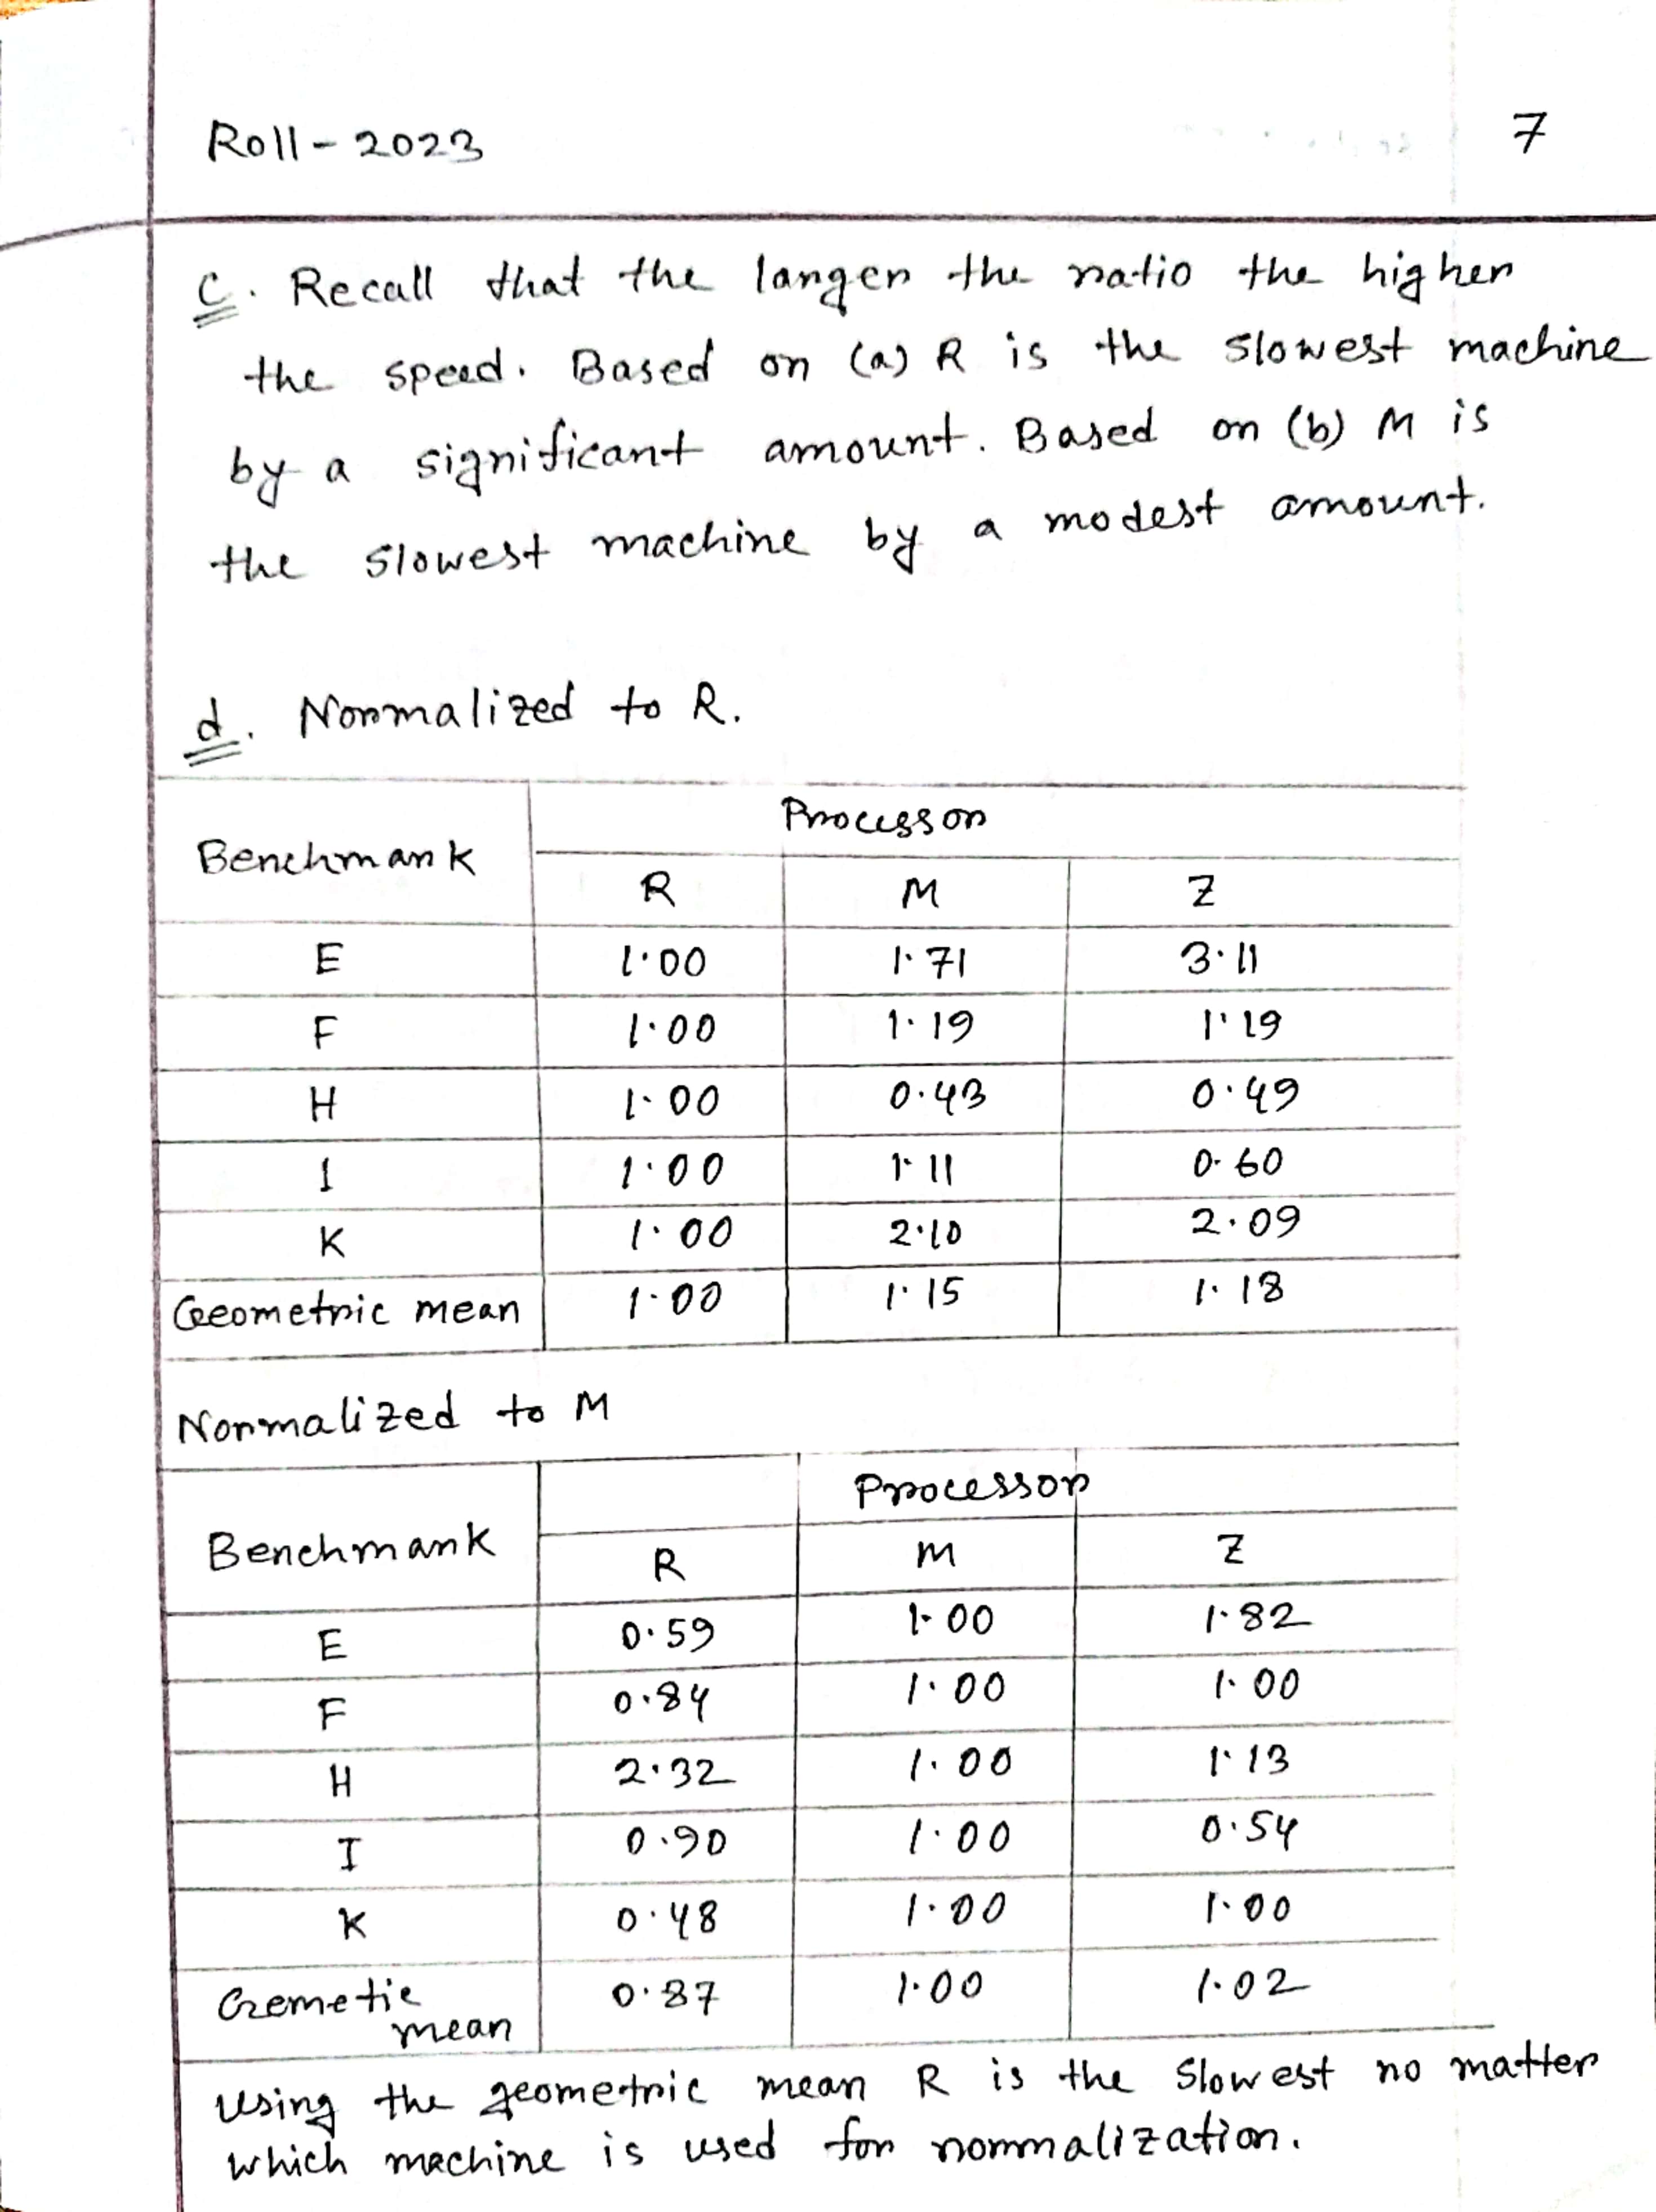 Roll - 2023
7
c. Recall that the larger the ratio the higher
the speed. Based on (a) R is the slowest machine
by a significant amount. Based on (b) M is
the slowest machine by a modest amount.
d. Normalized to R.
Benchmark Processor
R M Z
E 1.00 1.71 3.11
F 1.00 1.19 1.19
H 1.00 0.43 0.49
I 1.00 1.11 0.60
K 1.00 2.10 2.09
Geometric mean 1.00 1.15 1.18
Normalized to M
Benchmark Processor
R M Z
E 0.59 1.00 1.82
F 0.84 1.00 1.00
H 2.32 1.00 1.13
I 0.90 1.00 0.54
K 0.48 1.00 1.00
Gemetic 0.87 1.00 1.02
mean
Using the geometric mean R is the slowest no matter
which machine is used for normalization.